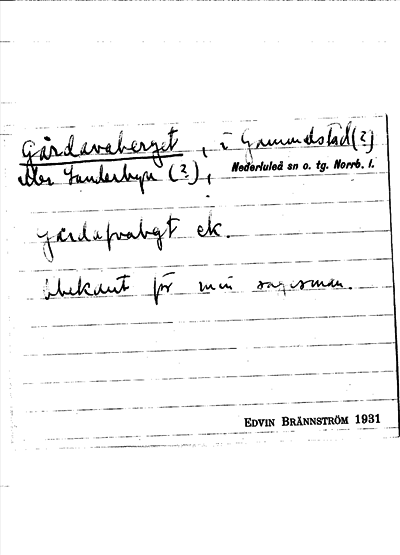 Gårdavaberget, i Gammelstad(?)
eller Sunderbyn (?), Nederluleå sn o. tg. Norrb. l.
ek.
Obekant för min sagesman.
EDVIN BRÄNNSTRÖM 1931